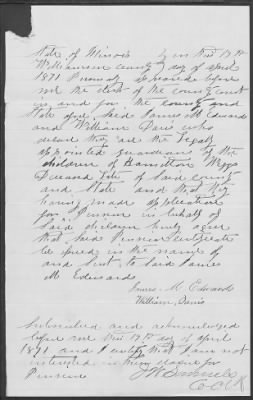 State of Illinois } on this 17th
Williamson county } day of April
1871 Personaly appeared before
me the clerk of the county court
in and for the county and
State afore said James M Edwards
and William Davis who
declare they are the Legaly
appointed guardians of the
children of Hamilton
Deceased Late of said county
and State and that they
having made application
for Pension in behalf of
said children hereby agree
that said Pension certificate
be issued in the name of
and sent to said James
M Edwards
James M. Edwards
William Davis
Subscribed and acknowledged
before me this 17th day of April
1871 and I certify that I am not
interested in this claim for
Pension
C.C.C.